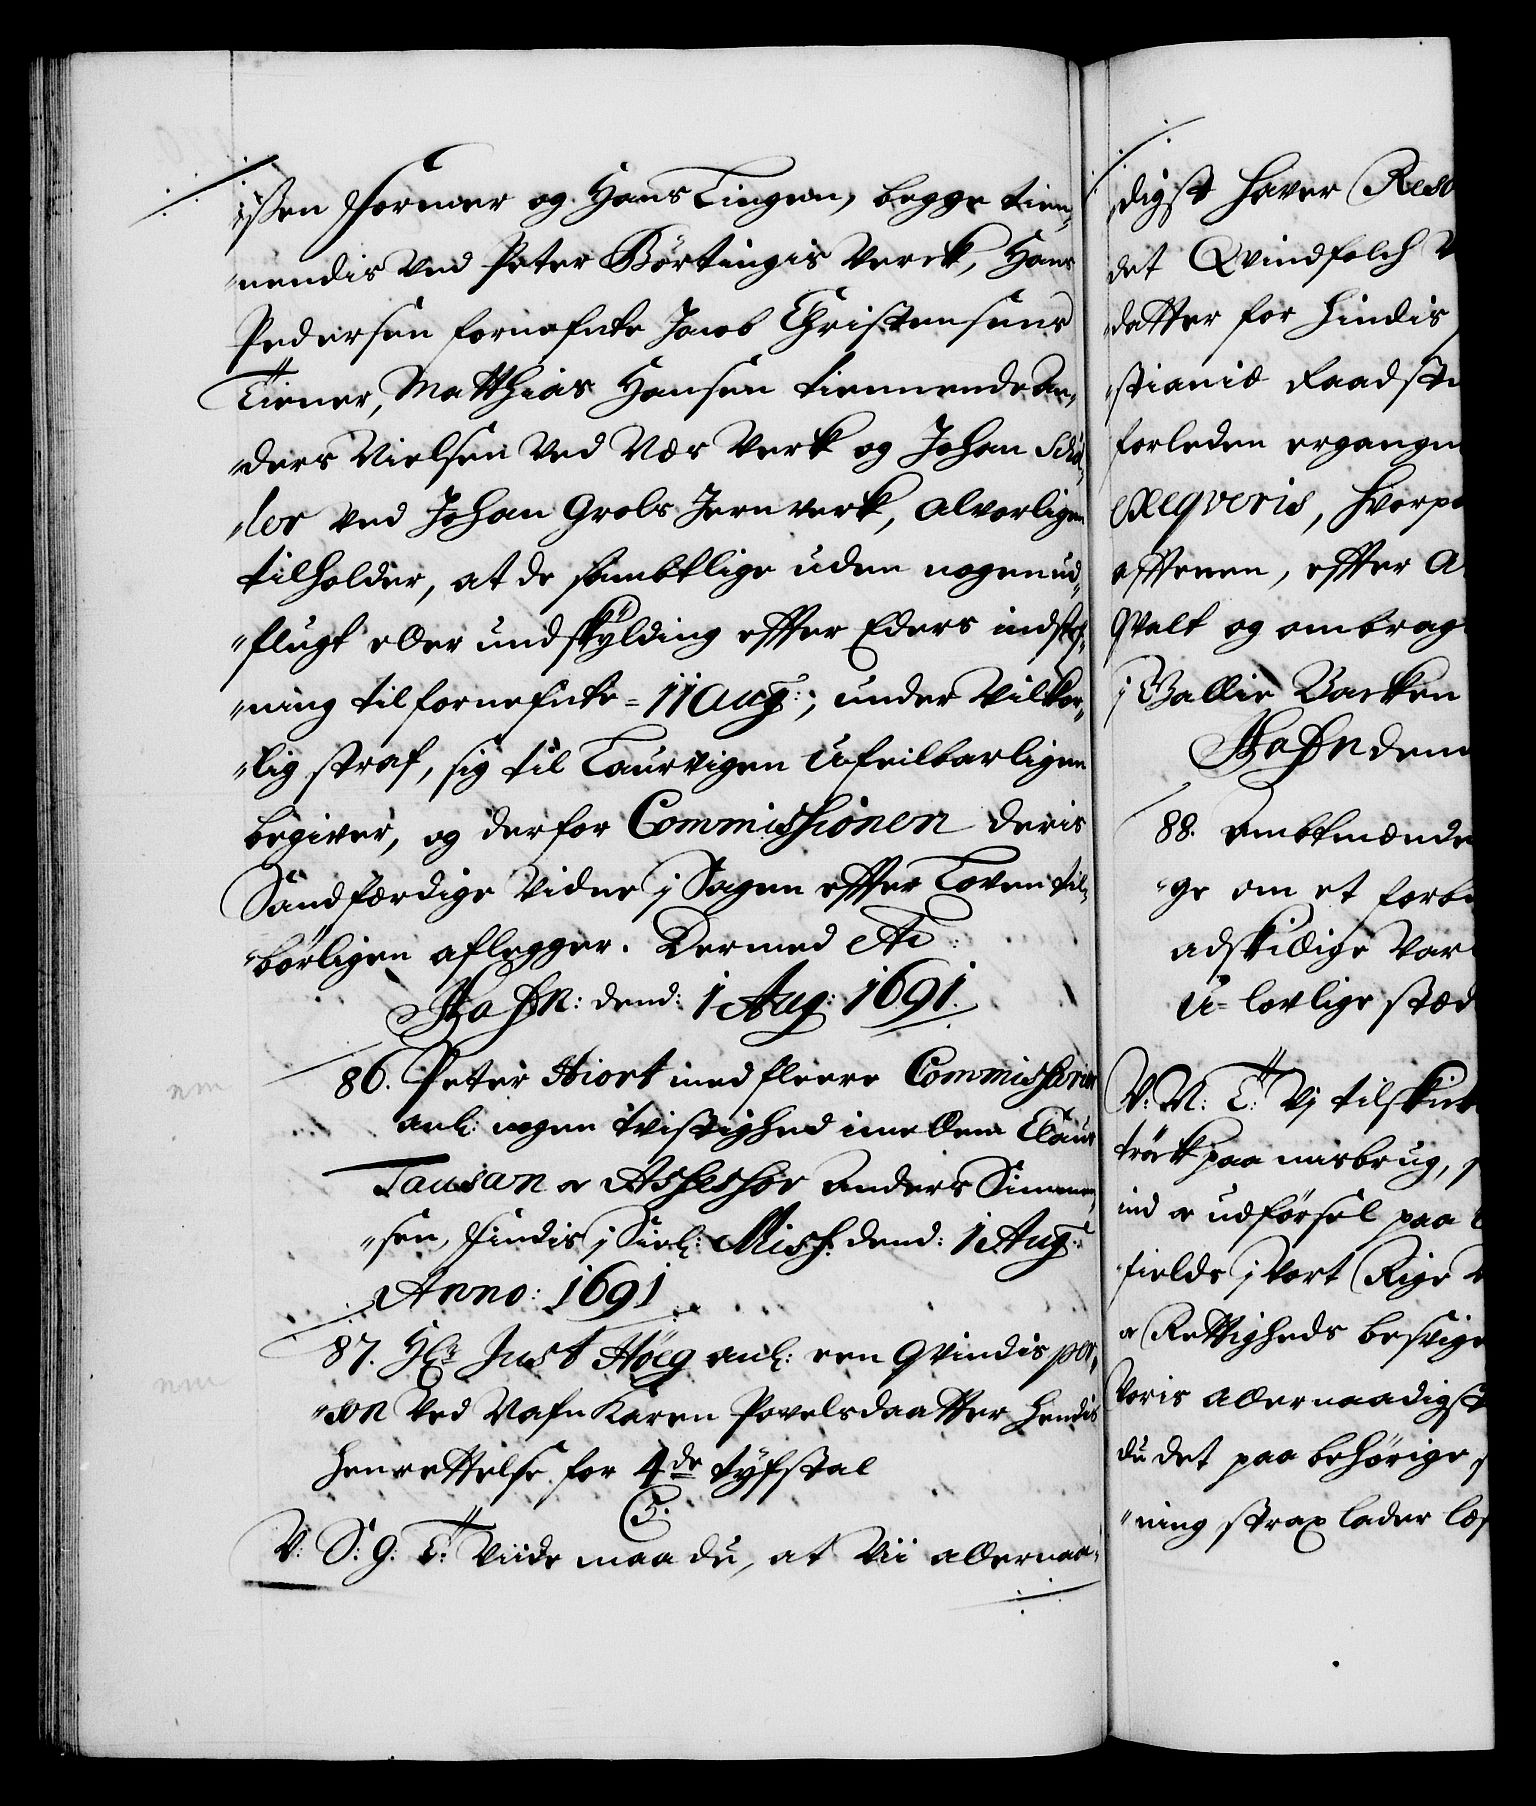 issen Former og Hans Tingen, begge tien,
"nendis Ved Peter Börtingis Verck, Hans
Pedersen fornefnte Jacob Christensens
Tiener, Matthias Hansen tiennende An,
"ders Nielsen Ved Nes Verk og Johan
"ler ved Johan Grobs Jernverk, alvorligen
tilholder, at de sambtlige uden nogen ud,
"flugt eller undskÿlding effter Eders indstef,
"ning til fornefnte = 11 Aug:, under Vilkor,
"lig straf, sig til Laurvigen Ufeilbarligen
begiver, og derfor Commissionen deris
Sandfærdige Vidne j Sagen effter Loven til,
"börligen aflegger. Dermed
Hafn: dend: 1 Aug: 1691.
86. Peter Hiort med fleere Commissarier
anl: nogen tvistighed imellem Claus
Tausan & Assessor Anders Simmen,
"sen, findis j Siel: Miss: dend: 1 Aug:
Anno: 1691
87. Hr Just Höeg anl: een Qvindis per,
"son Ved Nafn Karen Povelsdaatter hendis
henrettelse for 4de tÿfstal
C5.
V: S: G: T: Viide maa du, at Vii allernaa,
digst haver
det Qvindfolch
datter for hindis
"stianiæ Raadst
forleden ergangn
exeqveris, hvorpa
efftenen, effter
qvalt og ombrag
j Ballie Backen
Hafn dend
88. Ambtmænde
"ge om et forb
adskillige Var
U-lovlige stæd
V: N: T: Vj tilskick
tröck paa misbrug,
ind & udförsel paa
fields j Vort Rige
& Rettigheds besvige
Voris allernaadigst
du det paa behörige
"ning strax lader læs